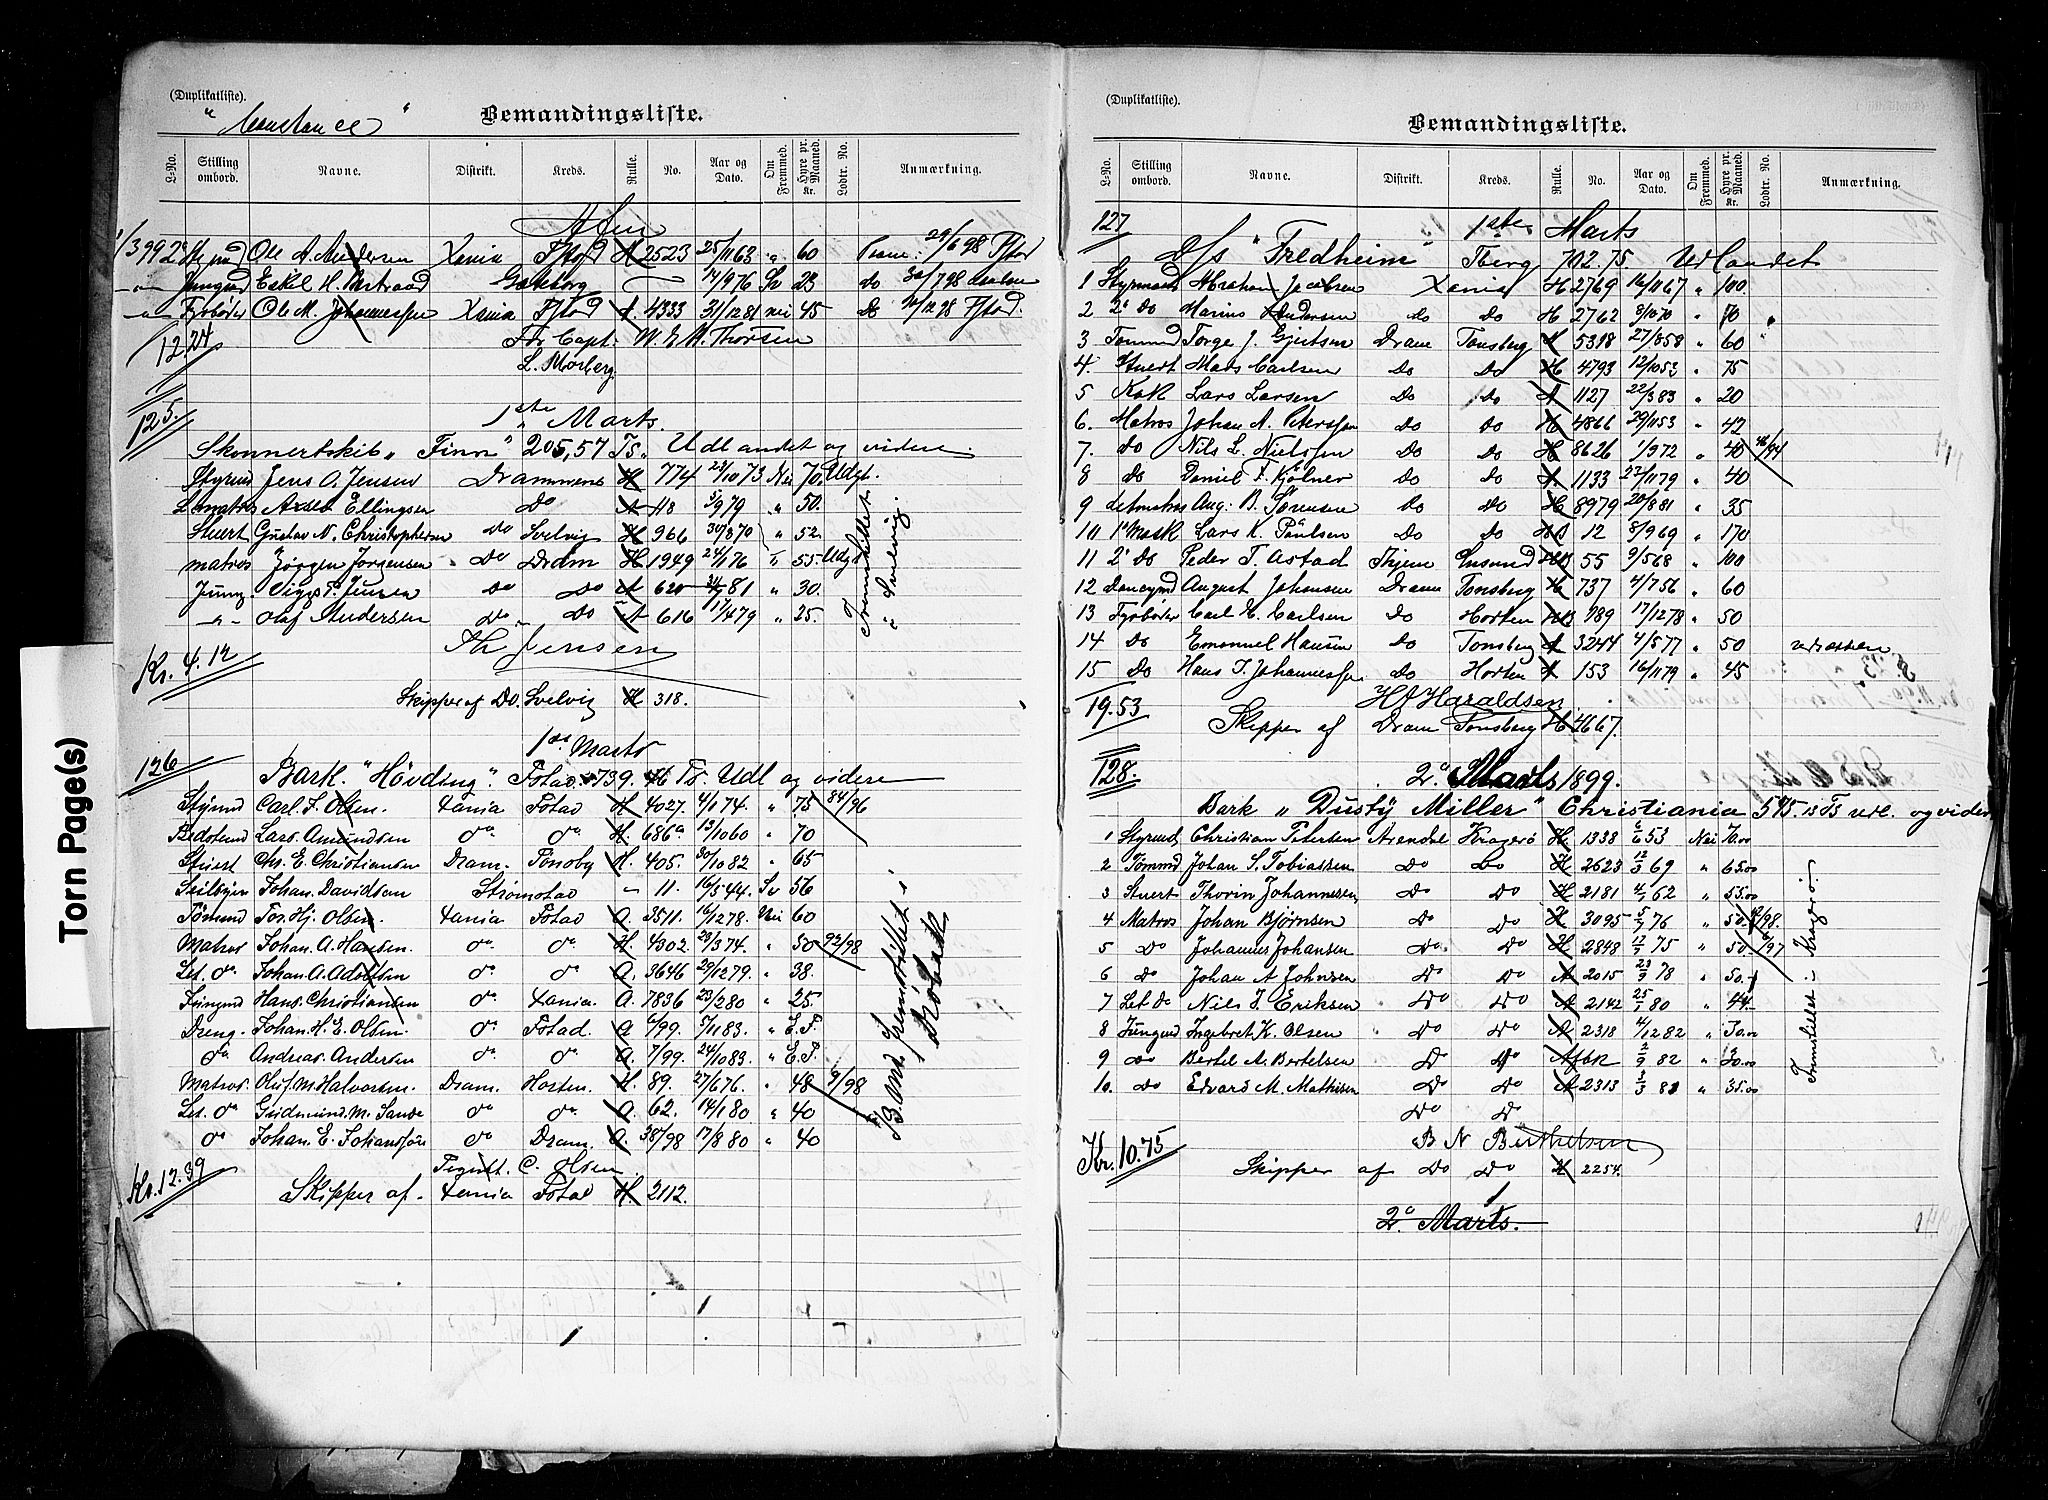 (Duplikatliste).
"Constance"
Bemandingsliste.
L-No. Stilling ombord. Navne. Distrikt. Kreds. Rulle. No. Aar og Dato. Om Fremmed. Hyre pr. Maaned. Kr. Lodtr. No. Anmærkning.
1/3 99 2' Ole A. Andersen Xania Fstad A 2523 25/11 63 " 60 29/6 98 Fstad
-"- Jungmd Eskel H. Göteborg 14/9 76 Sv 23 do 30/7 98
-"- Fyrbøder Ole M. Johannessen Xania Fstad A. 4333 31/12 81 nei 45 do 12 98 Fstad.
12.24 For Capt. W. E. M. Thorsen
L. Moberg.
125. 1ste Marts.
Skonnertskib "Finn" 205,57 Ts. Udlandet og videre.
Styrmd Jens A. Jensen Drammen H 774 23/10 73 Nei 70. Udgt.
Lmatros Axel Ellingsen do A 48 5/9 79 " 50.
Stuert Gustav N. Christophersen Do Svelvig H 966 30/8 70 " 52.
matros Jørgen Jørgensen Do Drdm H 1949 24/1 76 55. Udgt
Jung. Viggo F. Jensen Do Do A 620 81 " 30.
-"- Olaf Andersen Do Do A 616 17/4 79 " 25.
Fremstillet i Svelvig.
Kr. 4.12 Th Jensen
Skipper af Do. Svelvig H 318.
126 1ste Marts
Bark. "Hövding". Fstad. 739.46 Ts. Udl og videre
Styrmd Carl. F. Olsen. Xania Fstad H. 4027. 4/1 74. " 75 84/96
Bedstmd Lars. Amundsen do do H. 686a 13/10 60 " 70
Stuert Chr. E. Christiansen Dram. Tönsbg H. 405. 30/10 82 " 65
Seilsyer Johan. Davidsson Strömstad " 11. 16/5 44. Sv 56
Tömmd Tor. Hj. Olsen Xania Fstad A. 3511. 16/12 78. Nei 60
Matros Johan. A. Hansen. do do H. 4302. 23/3 74. " 50 92/98
Let. do Johan. A. Adolfsen do do A. 3646 29/12 79. " 38.
Jüngmd Hans. Christiansen do Xania. A. 7836 23/2 80 " 25.
Dreng. Johan. H. E. Olsen. do Fstad. A 6/99. 5/11 83. " E.F.
do Andreas. Andersen do do A. 7/99. 24/10 83. " E.F.
Matros. Oluf. M. Halvorsen. Dram. Horten. H. 89. 27/6 76. " 48 9/98
Let. do Gudmund. M. Sande do do A. 62. 14/1 80 " 40
do Johan. E. Johansson do Dram. A. 38/98 17/8 80 " 40
B. Md. fremstillet i Drøbak
Kr. 12.39 C. Olsen.
Skipper af. Xania Fstad H. 2112.
(Duplikatliste).
Bemandingsliste.
L-No. Stilling ombord. Navne. Distrikt. Kreds. Rulle. No. Aar og Dato. Om Fremmed. Hyre pr. Maaned. Kr. Lodtr. No. Anmærkning.
127 1ste Marts
D/s "Fredheim" Tberg 702.75. Udlandet
1 Styrmand Abraham Jacobsen Xania H 2769 16/11 67 " 100.
2 2' Do Marius Andersen do do H 2762 9/10 70 " 70
3 Tømmd Torge J. Gjertsen Dram Tønsberg A 5398 27/8 58 " 60
4. Stuert Mads Carlsen Do Do H 4793 12/10 53 " 75
5 Kok Lars Larsen do do A 1127 22/3 83 " 20
6. Matros Johan A. Peterssen do do H 4866 29/11 53 " 42
7. do Nils L. Nielssen Do Do H 8626 1/9 72 " 40 46/94
8 do Daniel F. Kjölner do do A 1133 22/11 79 " 40
9 Letmatros Aug: B. Sørensen do do H 8979 20/8 81 " 35
10 1' Mask Lars K. Paulsen do do HB 12 8/9 69 " 170
11 2' Do Peder T. Astad Thjem Xnsund HB 55 9/5 68 " 100
12 Donkymd August Johansen Dram Tonsberg H 737 4/7 56 " 60
13 Fyrbøder Carl H. Carlsen do Horten HB 989 17/12 78 " 50
14 Do Emanuel Hansen Do Tonsberg A 3244 4/5 77 " 50
15 Do Hans T. Johannessen do Horten A 153 16/11 79 " 45
19.53 H A Haraldsen
Skipper af Dram Tønsberg H 4667.
128. 2' Marts 1899.
Bark "Dusty Miller" Christiania 575.15 Ts udl. og videre
1 Styrmd Christian Petersen Arendal Kragerö H 1338 2/6 53 Nei 70.00
2 Tömmd Johan S. Tobiassen Do Do H 2623 12/3 67 " 65.00
3 Stuert Thorin Johannessen Do Do H 2181 4/1 62 " 55.00
4 Matros Johan Bjørnsen Do Do H 3095 5/7 76 " 50. 92/98.
5 Do Johannes Johansen Do. Do H 2848 12/1 75 " 50. 6/97
6 Do Johan A Johnsen Do Do A 2015 23/9 78 " 50.
7 Let Do Nils I. Eriksen Do Do A 2142 25/1 80 " 44.
8 Jüngmd Ingebret K. Olsen Do Do A 2318 4/12 82 " 30.00
9 Do Bertel A. Bertelsen Do Do Afbk 2/9 82 " 30.00
10. Do Edvard M. Mathisen Do Do A 2313 3/3 81 " 35.00
Do Do
Fremstillet i Kragerö.
Kr. 10.75 B N Berthelsen
Skipper af Do Do H 2254.
2' Marts.
Torn Page(s)